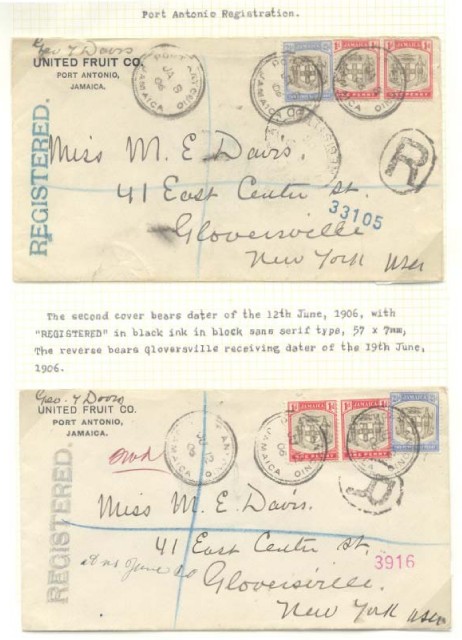 Port Antonio Registration.
Geo T Davis
UNITED FRUIT CO.
PORT ANTONIO,
JAMAICA.
REGISTERED.
PORT ANTONIO
JAMAICA
JAMAICA
ONE PENNY
R
Miss M. E. Davis.
41 East Center St.
33105
Gloversville
New York
USA
The second cover bears dater of the 12th June, 1906, with
"REGISTERED" in black ink in block sans serif type, 57 x 7mm,
The reverse bears qloversville receiving dater of the 19th June,
1906.
Geo. T Davis
UNITED FRUIT CO.
PORT ANTONIO,
JAMAICA.
REGISTERED.
JAMAICA
JAMAICA
ONE PENNY
R
Miss M. E. Davis.
41 East Center St.
3916
Gloversville.
New York
USA